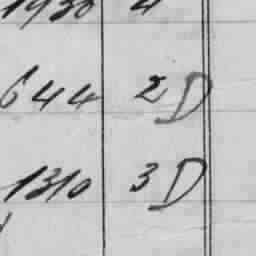 1930 4
644 2D
1310 3D